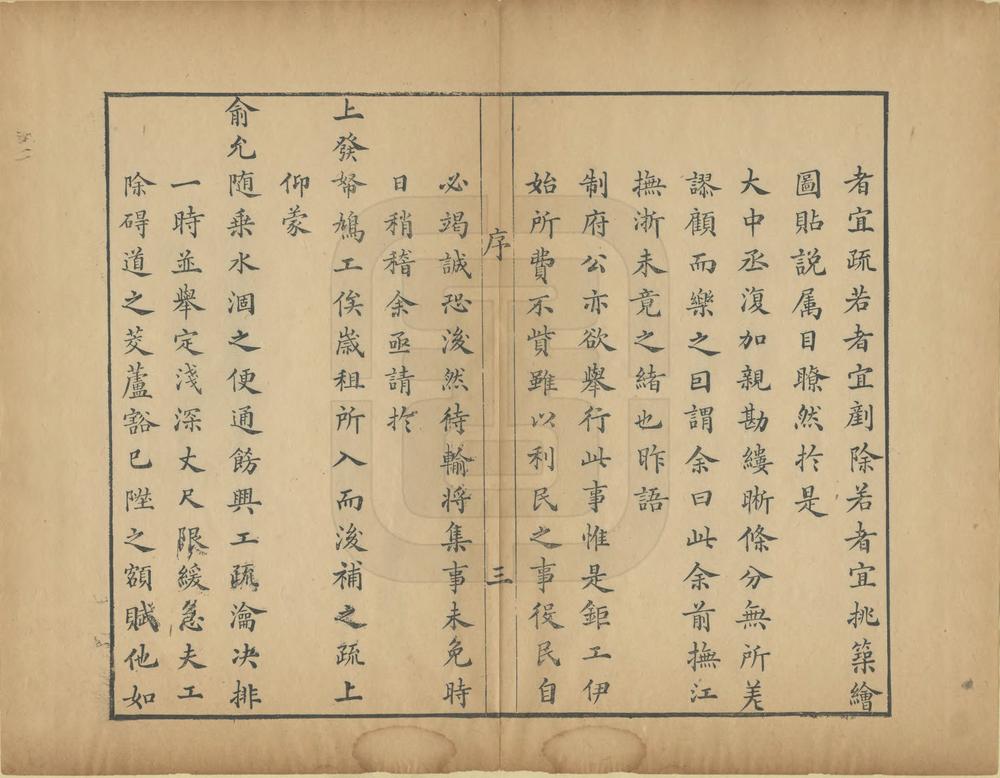 者宜疏若者宜剷除若者宜挑築繪
圖貼説属目瞭然扵是
大中丞復加親勘縷晰條分無所差
謬顧而樂之曰謂余曰此余前撫江
撫浙未竟之緒也昨語
制府公亦欲舉行此事惟是鉅工伊
始所費不貲雖以利民之事役民自
序
三
必竭誠恐浚然待輸将集事未免時
日稍稽余亟請扵
上發帑鳩工俟嵗租所入而浚補之疏上
仰蒙
俞允随乗水涸之便通飭興工疏瀹决排
一時並舉定淺深丈尺限緩急夫工
除碍道之茭蘆豁已陞之額賦他如